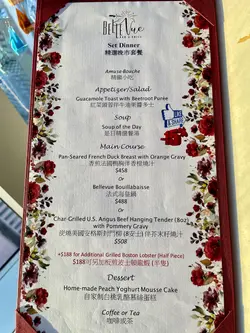 BELLE Vue
BAR & GRILL
Set Dinner
精選晚市套餐
Amuse-Bouche
精緻小吃
Appetizer/Salad
Guacamole Toast with Beetroot Purée
Soup
Soup of the Day
是日精選餐湯
Main Course
Pan-Seared French Duck Breast with Orange Gravy
香煎法國鴨胸伴香橙燒汁
$458
Or
Bellevue Bouillabaisse
法式海龍鍋
$488
Or
Char-Grilled U.S. Angus Beef Hanging Tender (8oz)
with Pommery Gravy
$508
+$188 for Additional Grilled Boston Lobster (Half Piece)
$188可另加配煎波士頓龍蝦 (半隻)
Dessert
Home-made Peach Yoghurt Mousse Cake
自家製白桃乳酪慕絲蛋糕
Coffee or Tea
咖啡或茶
LIKE
& SHARE